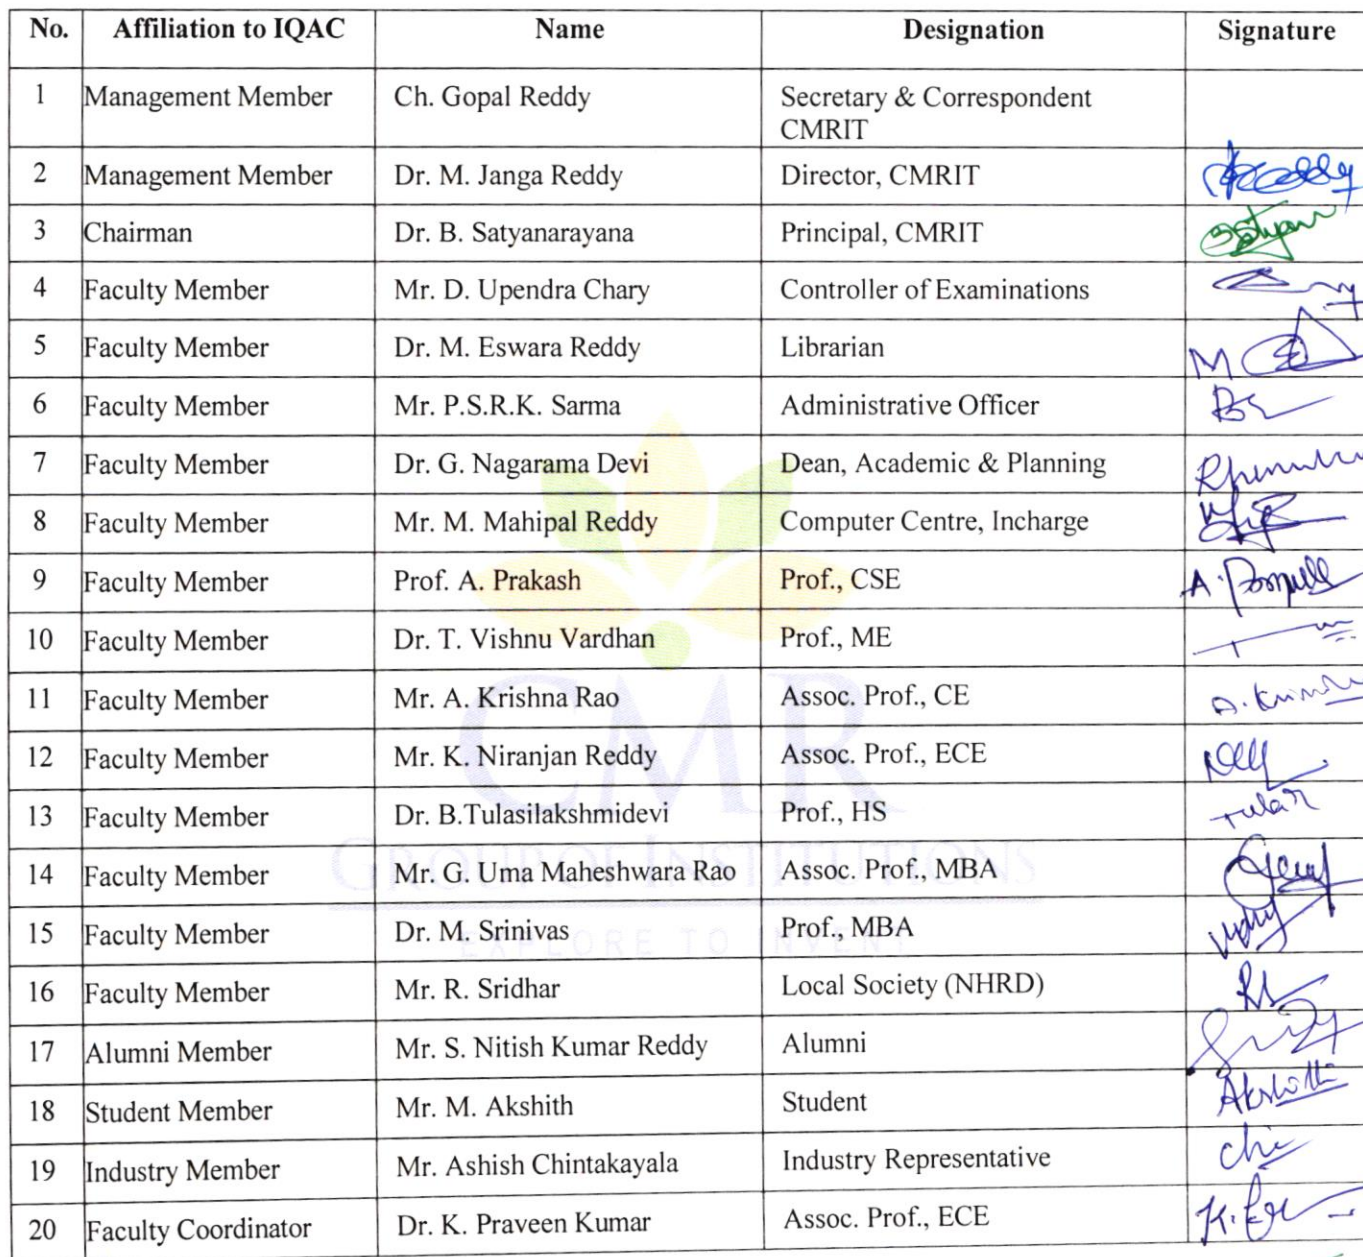 No. Affiliation to IQAC Name Designation Signature
1 Management Member Ch. Gopal Reddy Secretary & Correspondent
CMRIT
2 Management Member Dr. M. Janga Reddy Director, CMRIT
3 Chairman Dr. B. Satyanarayana Principal, CMRIT
4 Faculty Member Mr. D. Upendra Chary Controller of Examinations
5 Faculty Member Dr. M. Eswara Reddy Librarian
6 Faculty Member Mr. P.S.R.K. Sarma Administrative Officer
7 Faculty Member Dr. G. Nagarama Devi Dean, Academic & Planning
8 Faculty Member Mr. M. Mahipal Reddy Computer Centre, Incharge
9 Faculty Member Prof. A. Prakash Prof., CSE
10 Faculty Member Dr. T. Vishnu Vardhan Prof., ME
11 Faculty Member Mr. A. Krishna Rao Assoc. Prof., CE
12 Faculty Member Mr. K. Niranjan Reddy Assoc. Prof., ECE
13 Faculty Member Dr. B.Tulasilakshmidevi Prof., HS
14 Faculty Member Mr. G. Uma Maheshwara Rao Assoc. Prof., MBA
15 Faculty Member Dr. M. Srinivas Prof., MBA
16 Faculty Member Mr. R. Sridhar Local Society (NHRD)
17 Alumni Member Mr. S. Nitish Kumar Reddy Alumni
18 Student Member Mr. M. Akshith Student
19 Industry Member Mr. Ashish Chintakayala Industry Representative
20 Faculty Coordinator Dr. K. Praveen Kumar Assoc. Prof., ECE
CMR
GROUP OF INSTITUTIONS
EXPLORE TO INVENT